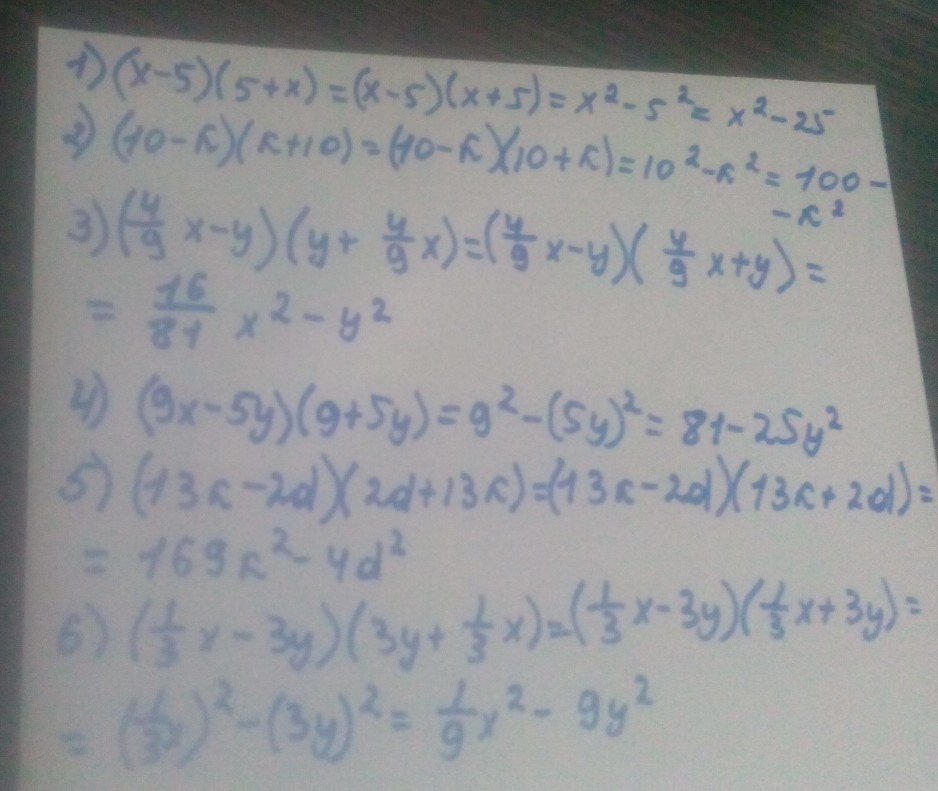 1) (x-5)(5+x) = (x-5)(x+5) = x² - 5² = x² - 25
2) (10-к)(к+10) = (10-к)(10+к) = 10² - к² = 100 -
- к²
3) (4/9 x - y)(y + 4/9 x) = (4/9 x - y)(4/9 x + y) =
= 16/81 x² - y²
4) (9x-5y)(9+5y) = 9² - (5y)² = 81 - 25y²
5) (13к-2d)(2d+13к) = (13к-2d)(13к+2d) =
= 169к² - 4d²
6) (1/3 x - 3y)(3y + 1/3 x) = (1/3 x - 3y)(1/3 x + 3y) =
= (1/3 x)² - (3y)² = 1/9 x² - 9y²